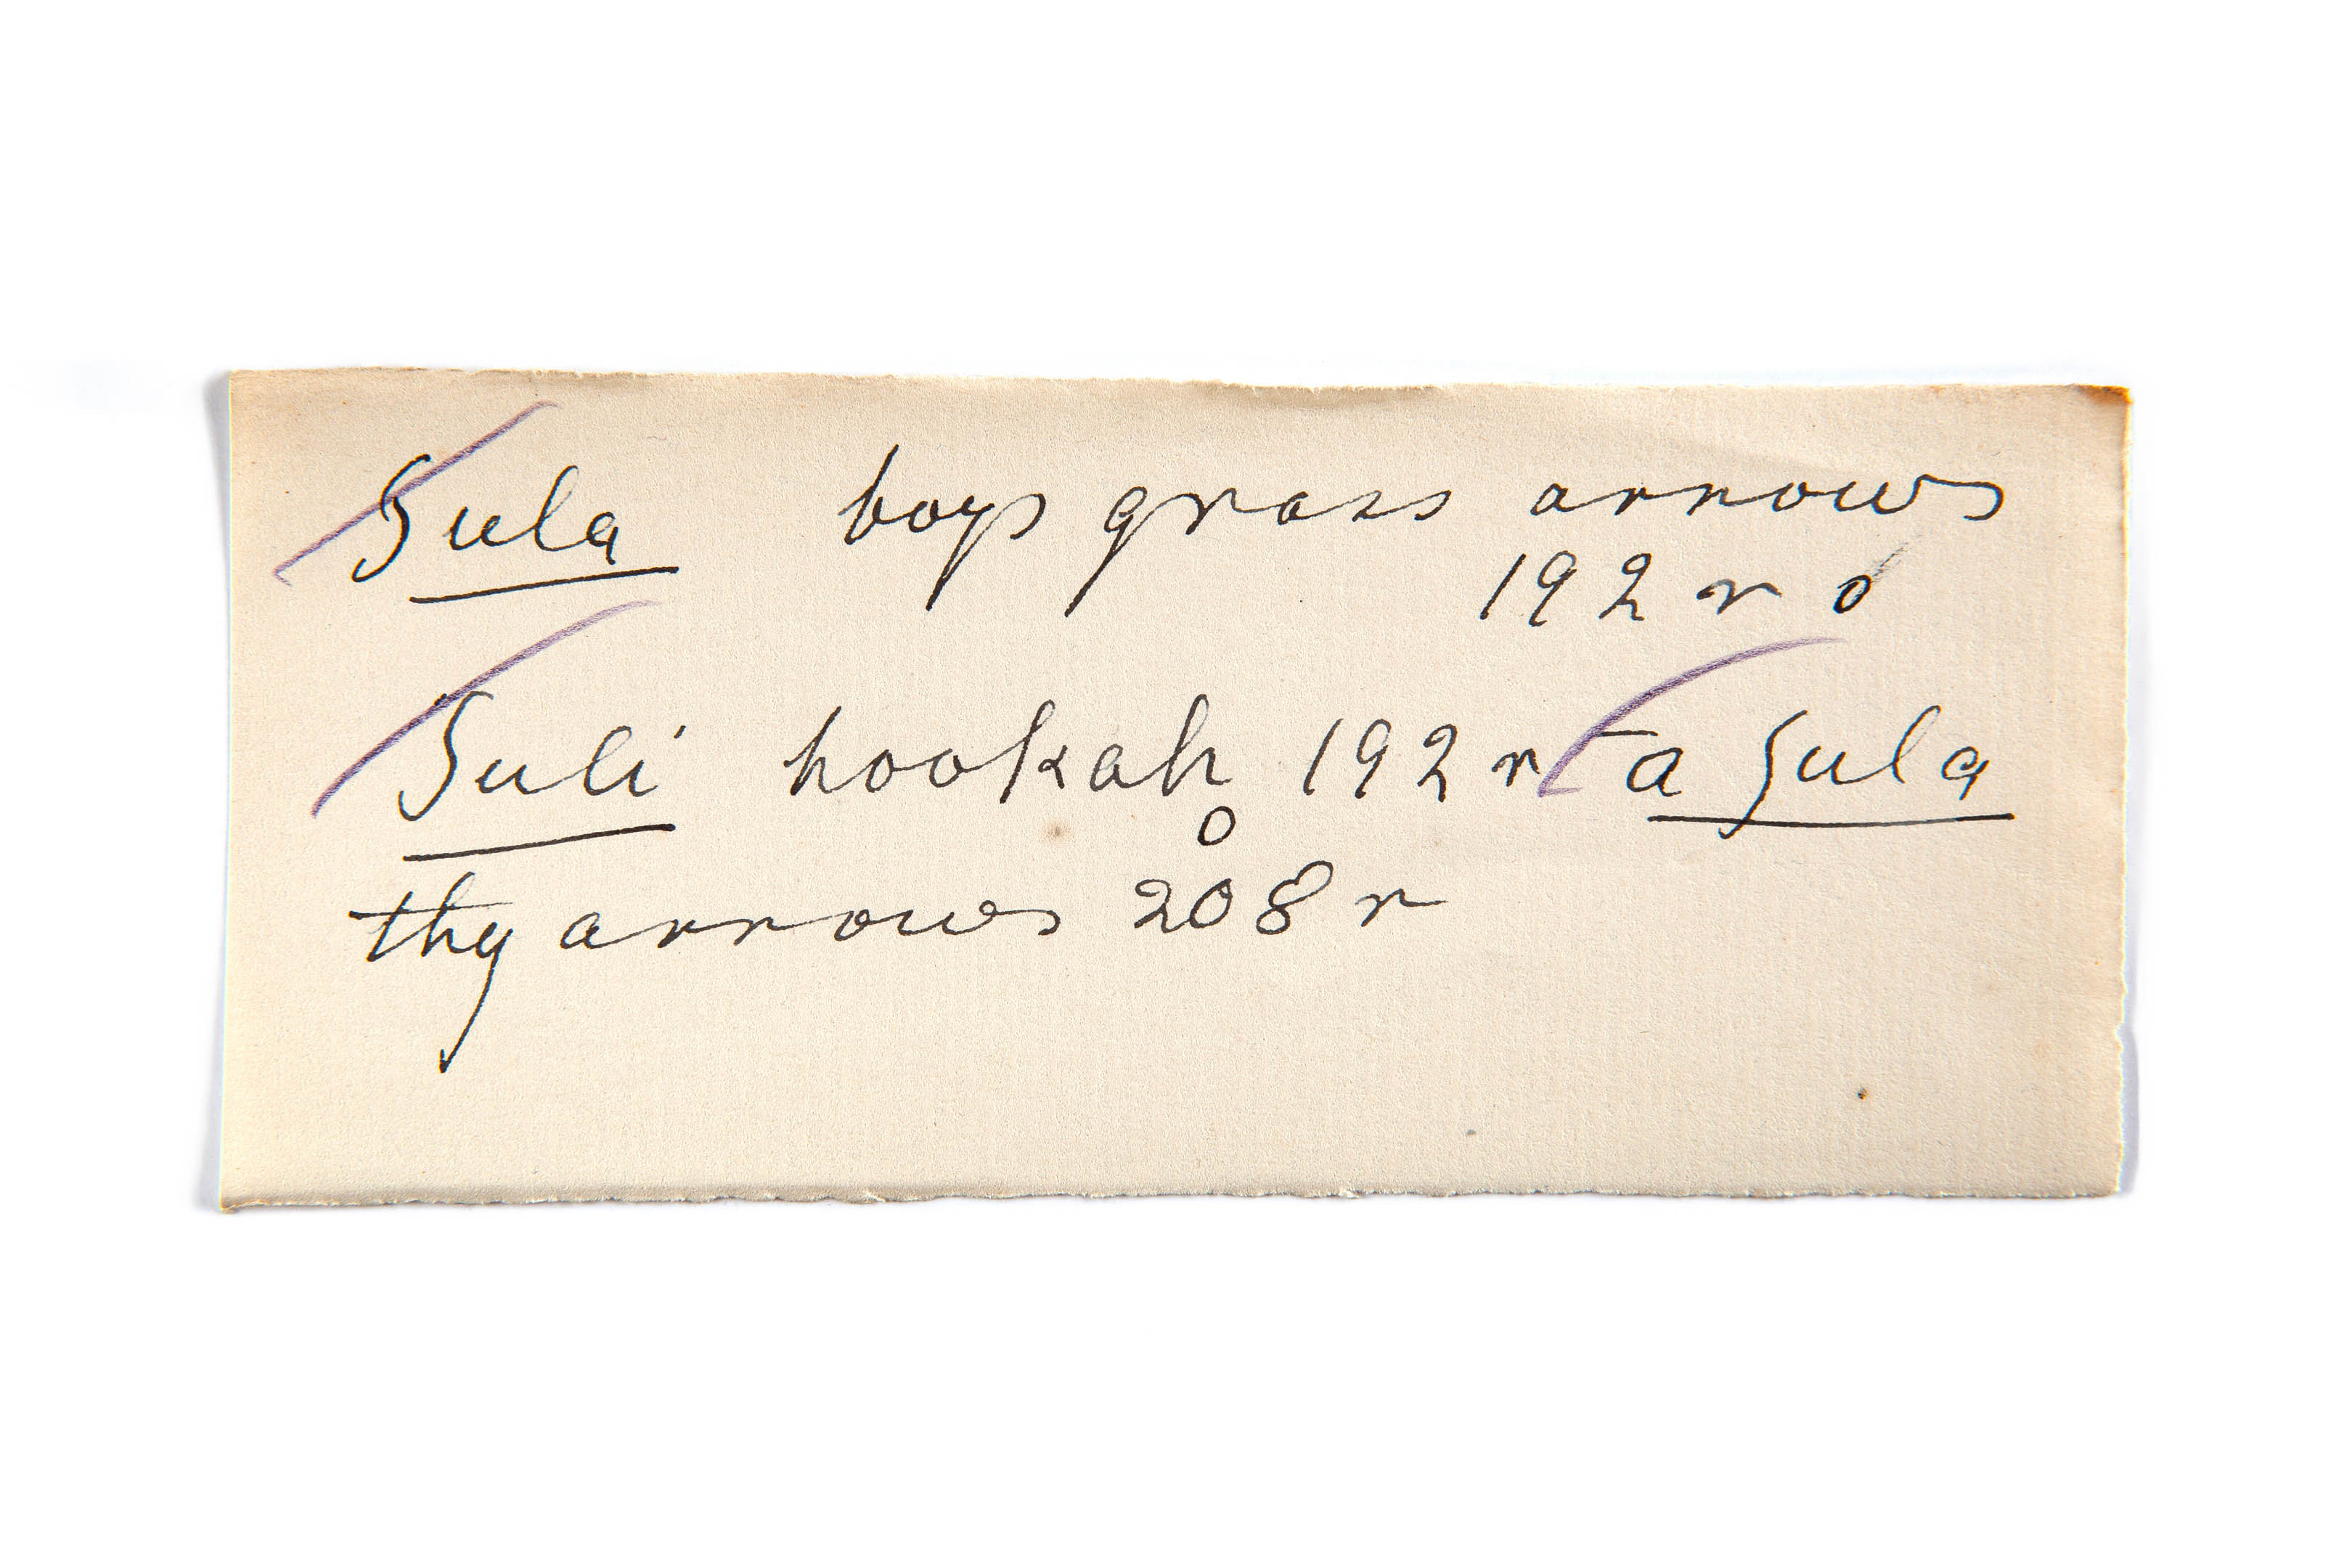 Sula boys grass arrows
192 r o
Suli hookah 192 r ta Sula
o
thy arrows 208 r